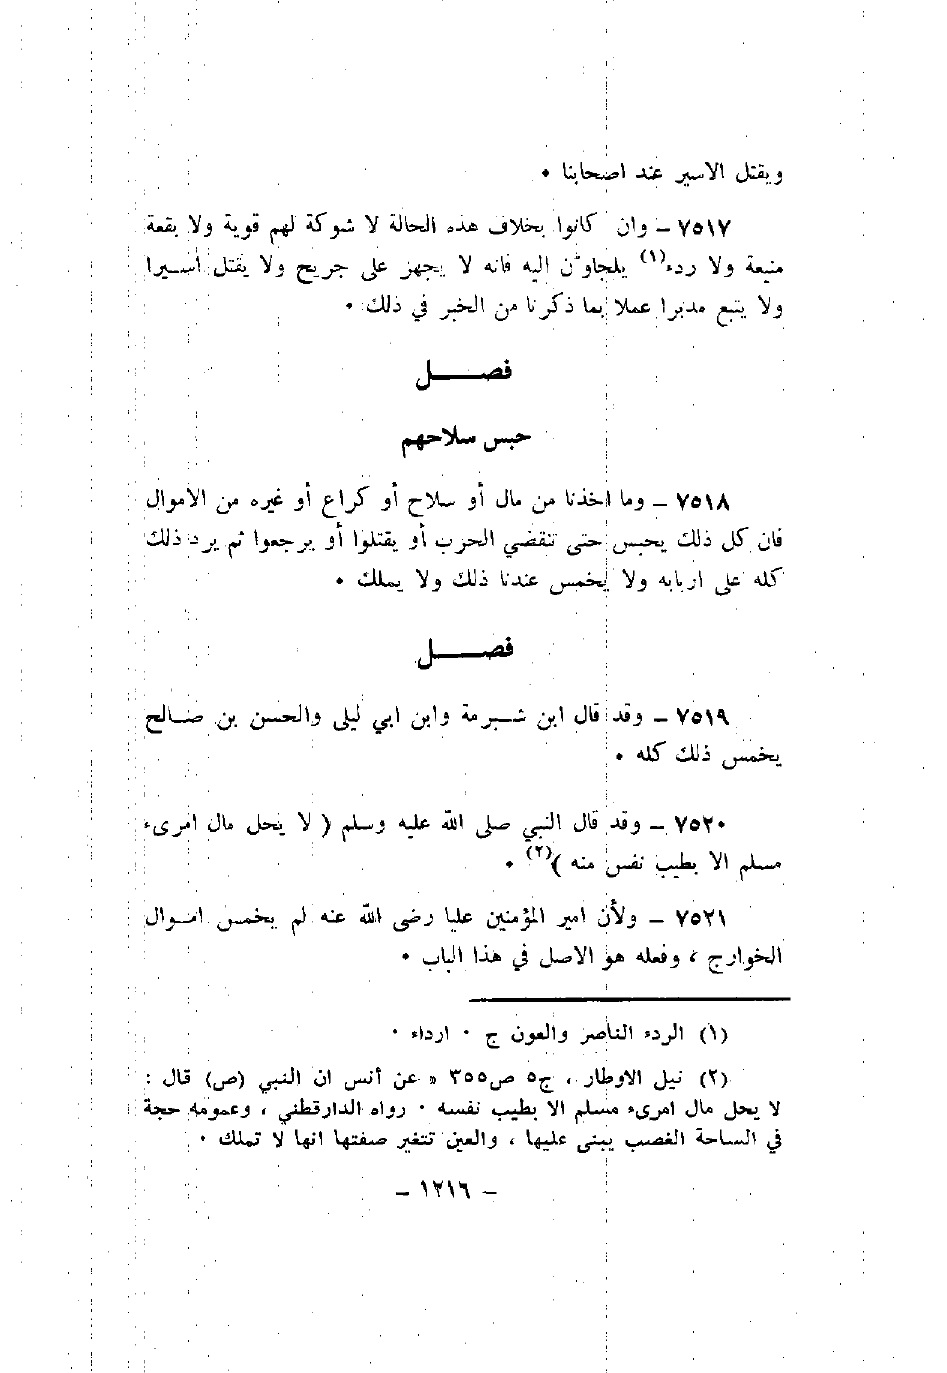 ويقتل الاسير عند اصحابنا ٠
٧٥١٧ ــ وان كانوا بخلاف هذه الحالة لا شوكة لهم قوية ولا بقعة
منيعة ولا ردء(١) يلجاون اليه فانه لا يجهز على جريح ولا يقتل أسيرا
ولا يتبع مدبرا عملا بما ذكرنا من الخبر في ذلك ٠
فصـــــل
حبس سلاحهم
٧٥١٨ ــ وما اخذنا من مال أو سلاح أو كراع أو غيره من الاموال
فان كل ذلك يحبس حتى تنقضي الحرب أو يقتلوا أو يرجعوا ثم يرد ذلك
كله على اربابه ولا يخمس عندنا ذلك ولا يملك ٠
فصـــــل
٧٥١٩ ــ وقد قال ابن شـبرمة وابن ابي ليلى والحسن بن صـالح
يخمس ذلك كله ٠
٧٥٢٠ ــ وقد قال النبي صلى الله عليه وسلم ( لا يحل مال امرىء
مسلم الا بطيب نفس منه )(٢) ٠
٧٥٢١ ــ ولأن امير المؤمنين عليا رضى الله عنه لم يخمس امـوال
الخوارج ، وفعله هو الاصل في هذا الباب ٠
(١) الردء الناصر والعون ج ٠ ارداء ٠
(٢) نيل الاوطار ، ج٥ ص٣٥٥ « عن أنس ان النبي (ص) قال :
لا يحل مال امرىء مسلم الا بطيب نفسه ٠ رواه الدارقطني ، وعمومه حجة
في الساحة الغصب يبنى عليها ، والعين تتغير صفتها انها لا تملك ٠
ــ ١٢١٦ ــ